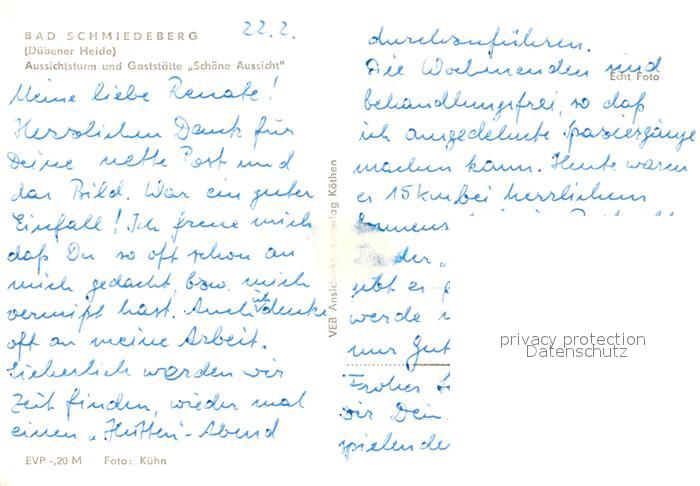 BAD SCHMIEDEBERG
(Dübener Heide)
Aussichtsturm und Gaststätte „Schöne Aussicht"
22.2.
Meine liebe Renate!
Herzlichen Dank für
Deine nette Post und
das Bild. War ein guter
Einfall! Ich freue mich
daß Du so oft schon an
mich gedacht, bzw. mich
vermißt hast. Auch ich denke
oft an meine Arbeit.
Sicherlich werden wir
Zeit finden, wieder mal
einen „Hütten"-Abend
EVP -,20 M Foto: Kühn
VEB Köthen
durchzuführen.
Die Wochenenden sind
Echt Foto
behandlungsfrei, so daß
ich ausgedehnte Spaziergänge
machen kann. Heute waren
es 15 km bei herrlichem
der „
gibt es
werde
nur Gut
Frohes
wir Dein
spielende
privacy protection
Datenschutz